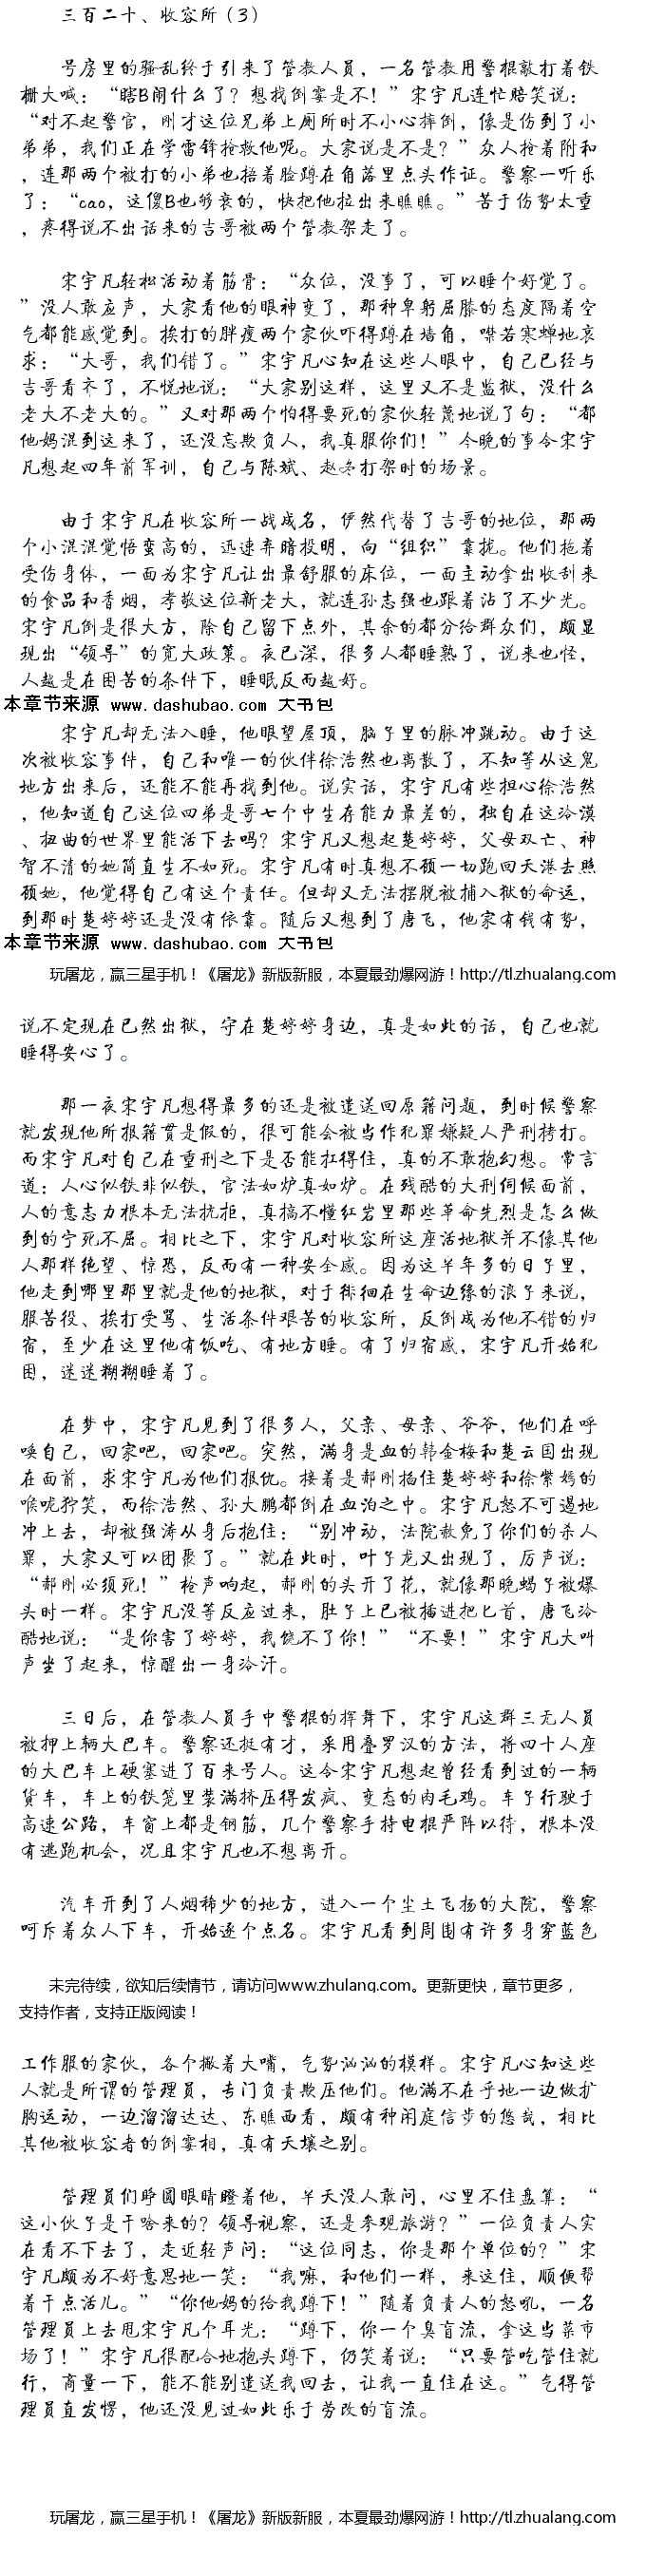 三百二十、收容所（3）
号房里的骚乱终于引来了管教人员，一名管教用警棍敲打着铁
栅大喊：“瞎B闹什么了？想找倒霉是不！”宋宇凡连忙赔笑说：
“对不起警官，刚才这位兄弟上厕所时不小心摔倒，像是伤到了小
弟弟，我们正在学雷锋抢救他呢。大家说是不是？”众人抢着附和
，连那两个被打的小弟也捂着脸蹲在角落里点头作证。警察一听乐
了：“cao，这傻B也够衰的，快把他拉出来瞧瞧。”苦于伤势太重
，疼得说不出话来的吉哥被两个管教架走了。
宋宇凡轻松活动着筋骨：“众位，没事了，可以睡个好觉了。
”没人敢应声，大家看他的眼神变了，那种卑躬屈膝的态度隔着空
气都能感觉到。挨打的胖瘦两个家伙吓得蹲在墙角，噤若寒蝉地哀
求：“大哥，我们错了。”宋宇凡心知在这些人眼中，自己已经与
吉哥看齐了，不悦地说：“大家别这样，这里又不是监狱，没什么
老大不老大的。”又对那两个怕得要死的家伙轻蔑地说了句：“都
他妈混到这来了，还没忘欺负人，我真服你们！”今晚的事令宋宇
凡想起四年前军训，自己与陈斌、赵冬打架时的场景。
由于宋宇凡在收容所一战成名，俨然代替了吉哥的地位，那两
个小混混觉悟蛮高的，迅速弃暗投明，向“组织”靠拢。他们拖着
受伤身体，一面为宋宇凡让出最舒服的床位，一面主动拿出收刮来
的食品和香烟，孝敬这位新老大，就连孙志强也跟着沾了不少光。
宋宇凡倒是很大方，除自己留下点外，其余的都分给群众们，颇显
现出“领导”的宽大政策。夜已深，很多人都睡熟了，说来也怪，
人越是在困苦的条件下，睡眠反而越好。
本章节来源 www.dashubao.com 大书包
宋宇凡却无法入睡，他眼望屋顶，脑子里的脉冲跳动。由于这
次被收容事件，自己和唯一的伙伴徐浩然也离散了，不知等从这鬼
地方出来后，还能不能再找到他。说实话，宋宇凡有些担心徐浩然
，他知道自己这位四弟是哥七个中生存能力最差的，独自在这冷漠
、扭曲的世界里能活下去吗？宋宇凡又想起楚婷婷，父母双亡、神
智不清的她简直生不如死。宋宇凡有时真想不顾一切跑回天港去照
顾她，他觉得自己有这个责任。但却又无法摆脱被捕入狱的命运，
到那时楚婷婷还是没有依靠。随后又想到了唐飞，他家有钱有势，
本章节来源 www.dashubao.com 大书包
玩屠龙，赢三星手机！《屠龙》新版新服，本夏最劲爆网游！http://tl.zhualang.com
说不定现在已然出狱，守在楚婷婷身边，真是如此的话，自己也就
睡得安心了。
那一夜宋宇凡想得最多的还是被遣送回原籍问题，到时候警察
就发现他所报籍贯是假的，很可能会被当作犯罪嫌疑人严刑拷打。
而宋宇凡对自己在重刑之下是否能扛得住，真的不敢抱幻想。常言
道：人心似铁非似铁，官法如炉真如炉。在残酷的大刑伺候面前，
人的意志力根本无法抗拒，真搞不懂红岩里那些革命先烈是怎么做
到的宁死不屈。相比之下，宋宇凡对收容所这座活地狱并不像其他
人那样绝望、惊恐，反而有一种安全感。因为这半年多的日子里，
他走到哪里那里就是他的地狱，对于徘徊在生命边缘的浪子来说，
服苦役、挨打受骂、生活条件艰苦的收容所，反倒成为他不错的归
宿，至少在这里他有饭吃、有地方睡。有了归宿感，宋宇凡开始犯
困，迷迷糊糊睡着了。
在梦中，宋宇凡见到了很多人，父亲、母亲、爷爷，他们在呼
唤自己，回家吧，回家吧。突然，满身是血的韩金梅和楚云国出现
在面前，求宋宇凡为他们报仇。接着是郝刚掐住楚婷婷和徐紫嫣的
喉咙狞笑，而徐浩然、孙大鹏都倒在血泊之中。宋宇凡怒不可遏地
冲上去，却被强涛从身后抱住：“别冲动，法院赦免了你们的杀人
罪，大家又可以团聚了。”就在此时，叶子龙又出现了，厉声说：
“郝刚必须死！”枪声响起，郝刚的头开了花，就像那晚蝎子被爆
头时一样。宋宇凡没等反应过来，肚子上已被插进把匕首，唐飞冷
酷地说：“是你害了婷婷，我饶不了你！”“不要！”宋宇凡大叫
声坐了起来，惊醒出一身冷汗。
三日后，在管教人员手中警棍的挥舞下，宋宇凡这群三无人员
被押上辆大巴车。警察还挺有才，采用叠罗汉的方法，将四十人座
的大巴车上硬塞进了百来号人。这令宋宇凡想起曾经看到过的一辆
货车，车上的铁笼里装满挤压得发疯、变态的肉毛鸡。车子行驶于
高速公路，车窗上都是钢筋，几个警察手持电棍严阵以待，根本没
有逃跑机会，况且宋宇凡也不想离开。
汽车开到了人烟稀少的地方，进入一个尘土飞扬的大院，警察
呵斥着众人下车，开始逐个点名。宋宇凡看到周围有许多身穿蓝色
未完待续，欲知后续情节，请访问www.zhulang.com。更新更快，章节更多，
支持作者，支持正版阅读！
工作服的家伙，各个撇着大嘴，气势汹汹的模样。宋宇凡心知这些
人就是所谓的管理员，专门负责欺压他们。他满不在乎地一边做扩
胸运动，一边溜溜达达、东瞧西看，颇有种闲庭信步的悠哉，相比
其他被收容者的倒霉相，真有天壤之别。
管理员们睁圆眼睛瞪着他，半天没人敢问，心里不住盘算：“
这小伙子是干啥来的？领导视察，还是参观旅游？”一位负责人实
在看不下去了，走近轻声问：“这位同志，你是那个单位的？”宋
宇凡颇为不好意思地一笑：“我嘛，和他们一样，来这住，顺便帮
着干点活儿。”“你他妈的给我蹲下！”随着负责人的怒吼，一名
管理员上去甩宋宇凡个耳光：“蹲下，你一个臭盲流，拿这当菜市
场了！”宋宇凡很配合地抱头蹲下，仍笑着说：“只要管吃管住就
行，商量一下，能不能别遣送我回去，让我一直住在这。”气得管
理员直发愣，他还没见过如此乐于劳改的盲流。
玩屠龙，赢三星手机！《屠龙》新版新服，本夏最劲爆网游！http://tl.zhualang.com